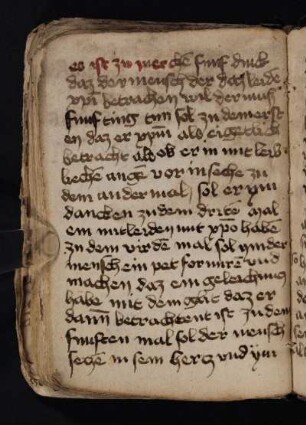 es ist zu mercken funf dinck
daz der mensch der daz leiden
xpi betrachen wil der mus
funf ting tun sol zu dem erst
en daz er xpm als eigetlich
betracht als ob er in mit leib
lichen augen vor im seche zu
dem ander mal sol er ym
dancken zu dem drite mal
ein mitleiden mit xpo haben
zu dem virden mal sol yn der
mensch ein pet formiren vnd
machen daz ein geleichnus
habe mit dem daz er
dann betrachtent ist zu dem
funften mal sol der mensch
sechen in sein hercz vnd ym